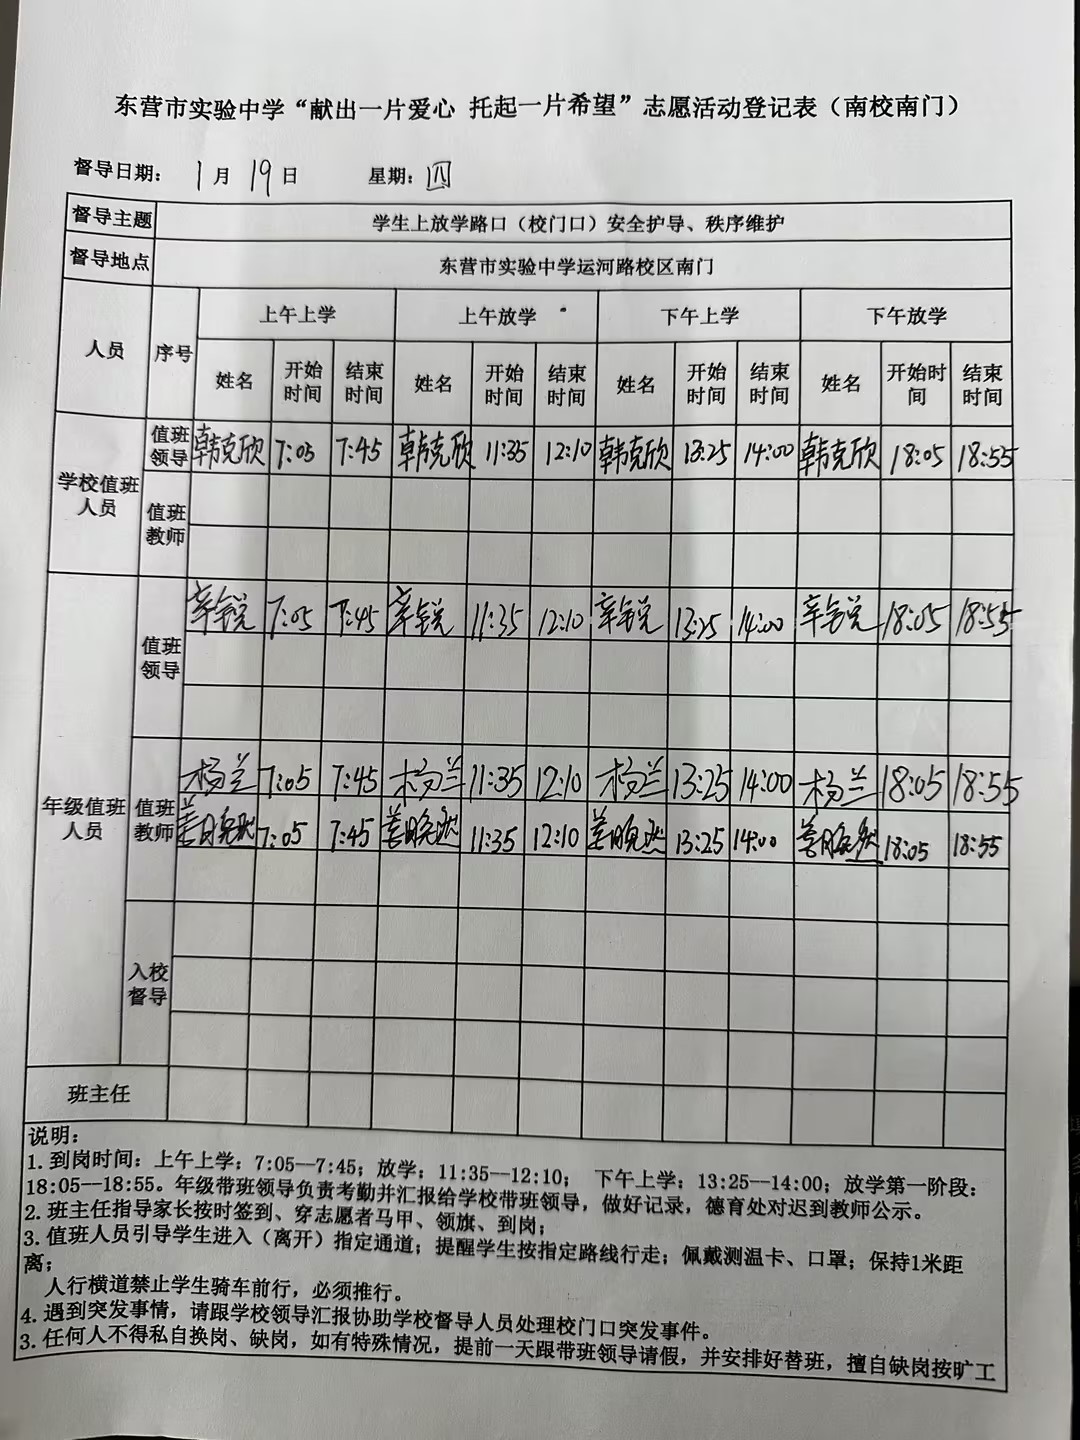 东营市实验中学“献出一片爱心 托起一片希望”志愿活动登记表（南校南门）
督导日期： 1月 19日 星期：四
督导主题 学生上放学路口（校门口）安全护导、秩序维护
督导地点 东营市实验中学运河路校区南门
人员 序号 上午上学 上午放学 下午上学 下午放学
姓名 开始时间 结束时间 姓名 开始时间 结束时间 姓名 开始时间 结束时间 姓名 开始时间 结束时间
学校值班人员 值班领导 韩克欣 7:05 7:45 韩克欣 11:35 12:10 韩克欣 13:25 14:00 韩克欣 18:05 18:55
值班教师
年级值班人员 值班领导 辛锐 7:05 7:45 辛锐 11:35 12:10 辛锐 13:25 14:00 辛锐 18:05 18:55
值班教师 杨兰 7:05 7:45 杨兰 11:35 12:10 杨兰 13:25 14:00 杨兰 18:05 18:55
姜晓燃 7:05 7:45 姜晓燃 11:35 12:10 姜晓燃 13:25 14:00 姜晓燃 18:05 18:55
入校督导
班主任
说明：
1. 到岗时间：上午上学：7:05--7:45；放学：11:35--12:10； 下午上学：13:25--14:00；放学第一阶段：
18:05--18:55。年级带班领导负责考勤并汇报给学校带班领导，做好记录，德育处对迟到教师公示。
2. 班主任指导家长按时签到、穿志愿者马甲、领旗、到岗；
3. 值班人员引导学生进入（离开）指定通道；提醒学生按指定路线行走；佩戴测温卡、口罩；保持1米距
离；
人行横道禁止学生骑车前行，必须推行。
4. 遇到突发事情，请跟学校领导汇报协助学校督导人员处理校门口突发事件。
3. 任何人不得私自换岗、缺岗，如有特殊情况，提前一天跟带班领导请假，并安排好替班，擅自缺岗按旷工